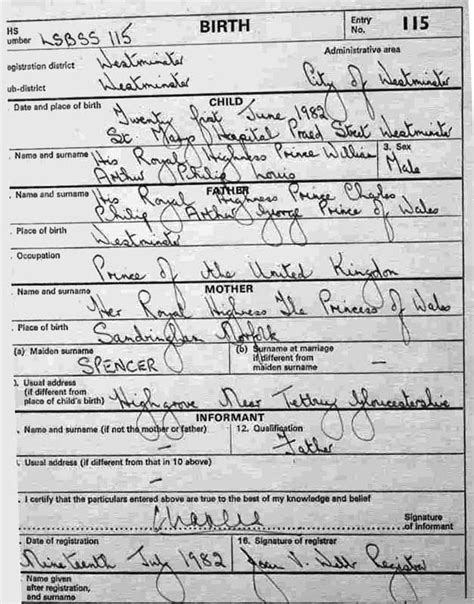 HS BIRTH Entry No. 115
umber LSBSS 115 Administrative area
egistration district Westminster
ub-district Westminster City of Westminster
CHILD
. Date and place of birth Twenty first June 1982
St. Mary's Hospital Praed Street Westminster
. Name and surname His Royal Highness Prince William 3. Sex
Arthur Philip Louis Male
FATHER
. Name and surname His Royal Highness Prince Charles
Philip Arthur George Prince of Wales
. Place of birth
Westminster
. Occupation
Prince of the United Kingdom
MOTHER
. Name and surname
Her Royal Highness The Princess of Wales
. Place of birth
Sandringham Norfolk
(a) Maiden surname (b) Surname at marriage
if different from
maiden surname —
SPENCER
). Usual address
(if different from
place of child's birth) Highgrove Near Tetbury Gloucestershire
INFORMANT
. Name and surname (if not the mother or father) 12. Qualification
— Father
. Usual address (if different from that in 10 above)
—
. I certify that the particulars entered above are true to the best of my knowledge and belief
Charles Signature
of informant
. Date of registration 16. Signature of registrar
Nineteenth July 1982 Joan V. Webb Registrar
. Name given
after registration,
and surname —